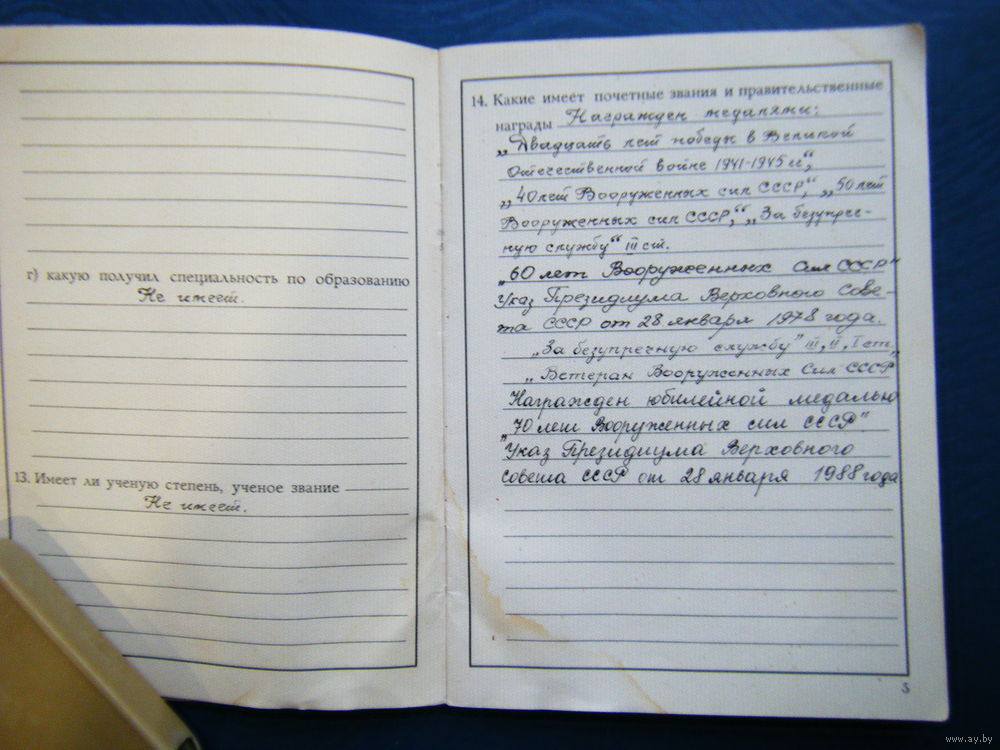 г) какую получил специальность по образованию
Не имеет.
13. Имеет ли ученую степень, ученое звание
Не имеет.
14. Какие имеет почетные звания и правительственные
награды Награжден медалями:
„Двадцать лет победы в Великой
Отечественной войне 1941-1945 гг“,
„40 лет Вооруженных сил СССР“, „50 лет
Вооруженных сил СССР“, „За безупреч-
ную службу“ III ст.
„60 лет Вооруженных Сил СССР“
Указ Президиума Верховного Сове-
та СССР от 28 января 1978 года.
„За безупречную службу” III, II, I ст.
„Ветеран Вооруженных Сил СССР”
Награжден юбилейной медалью
„70 лет Вооруженных сил СССР”
Указ Президиума Верховного
Совета СССР от 28 января 1988 года
5
www.ay.by